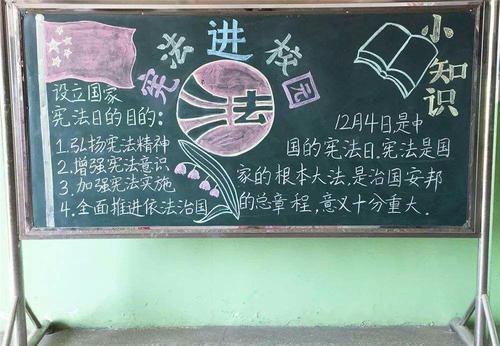 宪法进校园
小知识
法
设立国家
宪法日的目的:
1.弘扬宪法精神
2.增强宪法意识
3.加强宪法实施
4.全面推进依法治国
12月4日是中
国的宪法日.宪法是国
家的根本大法,是治国安邦
的总章程,意义十分重大.